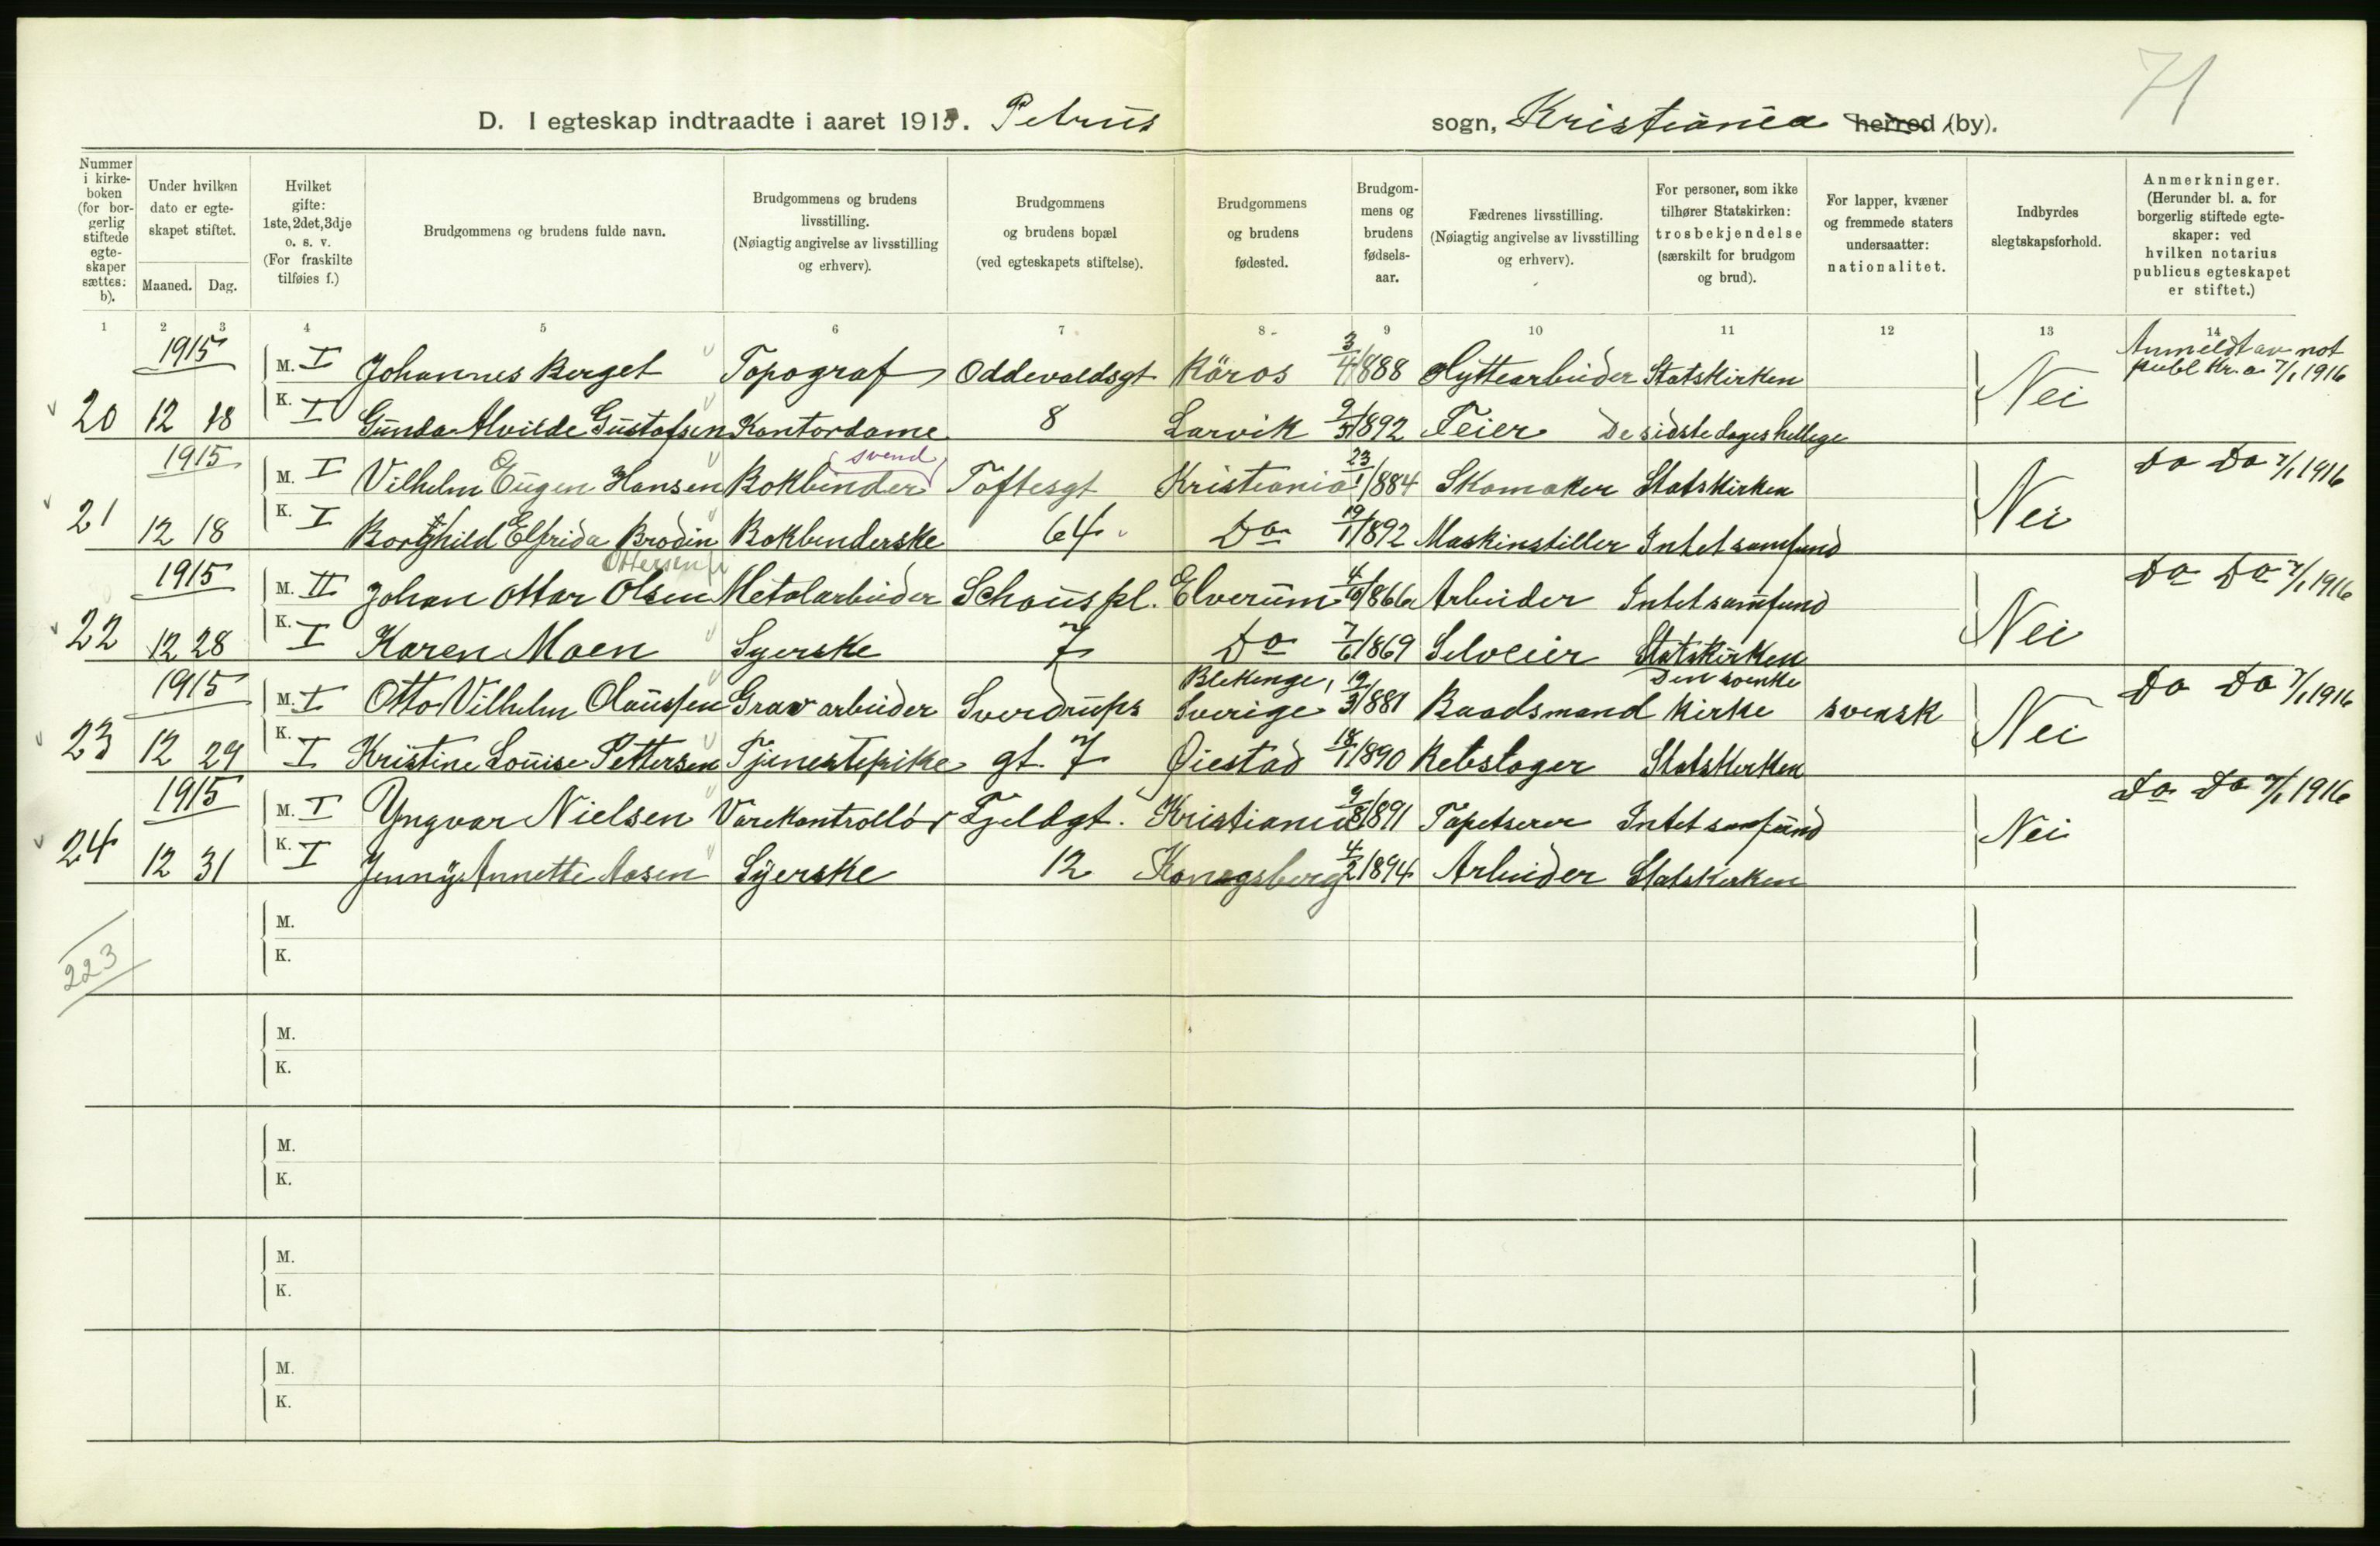 71
D. I egteskap indtraadte i aaret 1915. Petrus sogn, Kristiania herred (by).
Nummer i kirke-boken (for bor-gerlig stiftede egte-skaper sættes: b).
Under hvilken dato er egte-skapet stiftet.
Maaned. Dag.
Hvilket gifte: 1ste, 2det, 3dje o. s. v. (For fraskilte tilføies f.)
Brudgommens og brudens fulde navn.
Brudgommens og brudens livsstilling. (Nøiagtig angivelse av livsstilling og erhverv).
Brudgommens og brudens bopæl (ved egteskapets stiftelse).
Brudgommens og brudens fødested.
Brudgom-mens og brudens fødsels-aar.
Fædrenes livsstilling. (Nøiagtig angivelse av livsstilling og erhverv).
For personer, som ikke tilhører Statskirken: trosbekjendelse (særskilt for brudgom og brud).
For lapper, kvæner og fremmede staters undersaatter: nationalitet.
Indbyrdes slegtskapsforhold.
Anmerkninger. (Herunder bl. a. for borgerlig stiftede egte-skaper: ved hvilken notarius publicus egteskapet er stiftet.)
1 2 3 4 5 6 7 8 9 10 11 12 13 14
1915 M. I Johannes Berget Topograf Oddevaldsgt Röros 3/4 1888 Hyttearbeider Statskirken Nei Anmeldt av not publ Kr.a 7/1 1916
20 12 18 K. I Gunda Alvilde Gustafsen Kontordame 8 Larvik 1892 Feier De sidste dages hellege
1915 M. I Vilhelm Eugen Hansen Bokbinder svend Toftesgt Kristiania 23/1 1884 Skomaker Statskirken Nei Do Do 7/1 1916
21 12 18 K. I Borghild Elfrida Brodin Bokbinderske 64 Do 1892 Maskinstiller Intet samfund
Ottersen
1915 M. II Johan Ottar Olsen Metalarbeider Schous pl. Elverum 1866 Arbeider Intet samfund Nei Do Do 7/1 1916
22 12 28 K. I Karen Moen Syerske 7 Do 7/6 1869 Selveier Statskirken
1915 M. I Otto Vilhelm Olaussen Grav arbeider Sverdrups Blekinge, Sverige 19/3 1881 Baadsmand Den svenke kirke svensk Nei Do Do 7/1 1916
23 12 29 K. I Kristine Louise Pettersen Tjenestepike gt. 7 Øiestad 18/1 1890 Rebslager Statskirken
1915 M. I Yngvar Nielsen Varekontrollör Fjeldgt. Kristiania 9/8 1891 Tapetserer Intet samfund Nei Do Do 7/1 1916
24 12 31 K. I Jenny Annette Aasen Syerske 12 Kongsberg 4/2 1894 Arbeider Statskirken
M.
223
K.
M.
K.
M.
K.
M.
K.
M.
K.